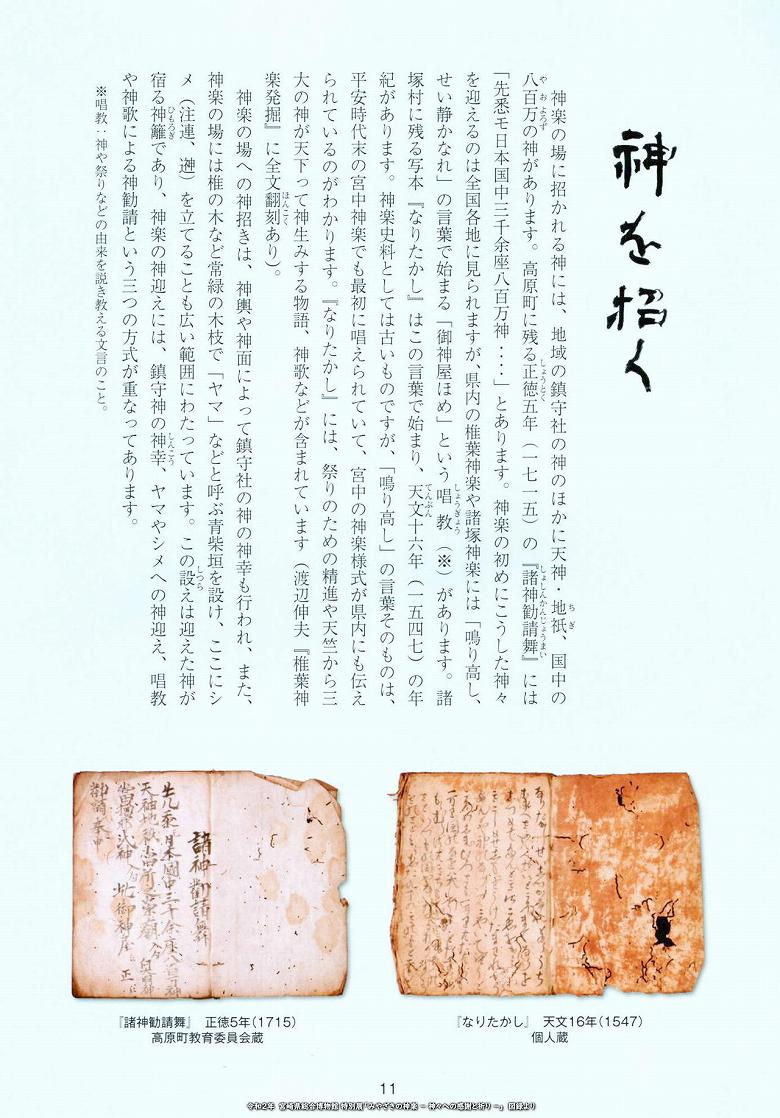 神を招く
神楽の場に招かれる神には、地域の鎮守社の神のほかに天神・地祇、国中の
八百万の神があります。高原町に残る正徳五年（一七一五）の『諸神勧請舞』には
「先悉モ日本国中三千余座八百万神・・・」とあります。神楽の初めにこうした神々
を迎えるのは全国各地に見られますが、県内の椎葉神楽や諸塚神楽には「鳴り高し、
せい静かなれ」の言葉で始まる「御神屋ほめ」という唱教（※）があります。諸
塚村に残る写本『なりたかし』はこの言葉で始まり、天文十六年（一五四七）の年
紀があります。神楽史料としては古いものですが、「鳴り高し」の言葉そのものは、
平安時代末の宮中神楽でも最初に唱えられていて、宮中の神楽様式が県内にも伝え
られているのがわかります。『なりたかし』には、祭りのための精進や天竺から三
大の神が天下って神生みする物語、神歌などが含まれています（渡辺伸夫『椎葉神
楽発掘』に全文翻刻あり）。
神楽の場への神招きは、神輿や神面によって鎮守社の神の神幸も行われ、また、
神楽の場には椎の木など常緑の木枝で「ヤマ」などと呼ぶ青柴垣を設け、ここにシ
メ（注連、𣝣）を立てることも広い範囲にわたっています。この設えは迎えた神が
宿る神籬であり、神楽の神迎えには、鎮守神の神幸、ヤマやシメへの神迎え、唱教
や神歌による神勧請という三つの方式が重なってあります。
※唱教：神や祭りなどの由来を説き教える文言のこと。
諸神勧請舞
『諸神勧請舞』 正徳5年(1715)
高原町教育委員会蔵
『なりたかし』 天文16年(1547)
個人蔵
11
令和2年 宮崎県総合博物館 特別展「みやざきの神楽 － 神々への感謝と祈り －」 図録より